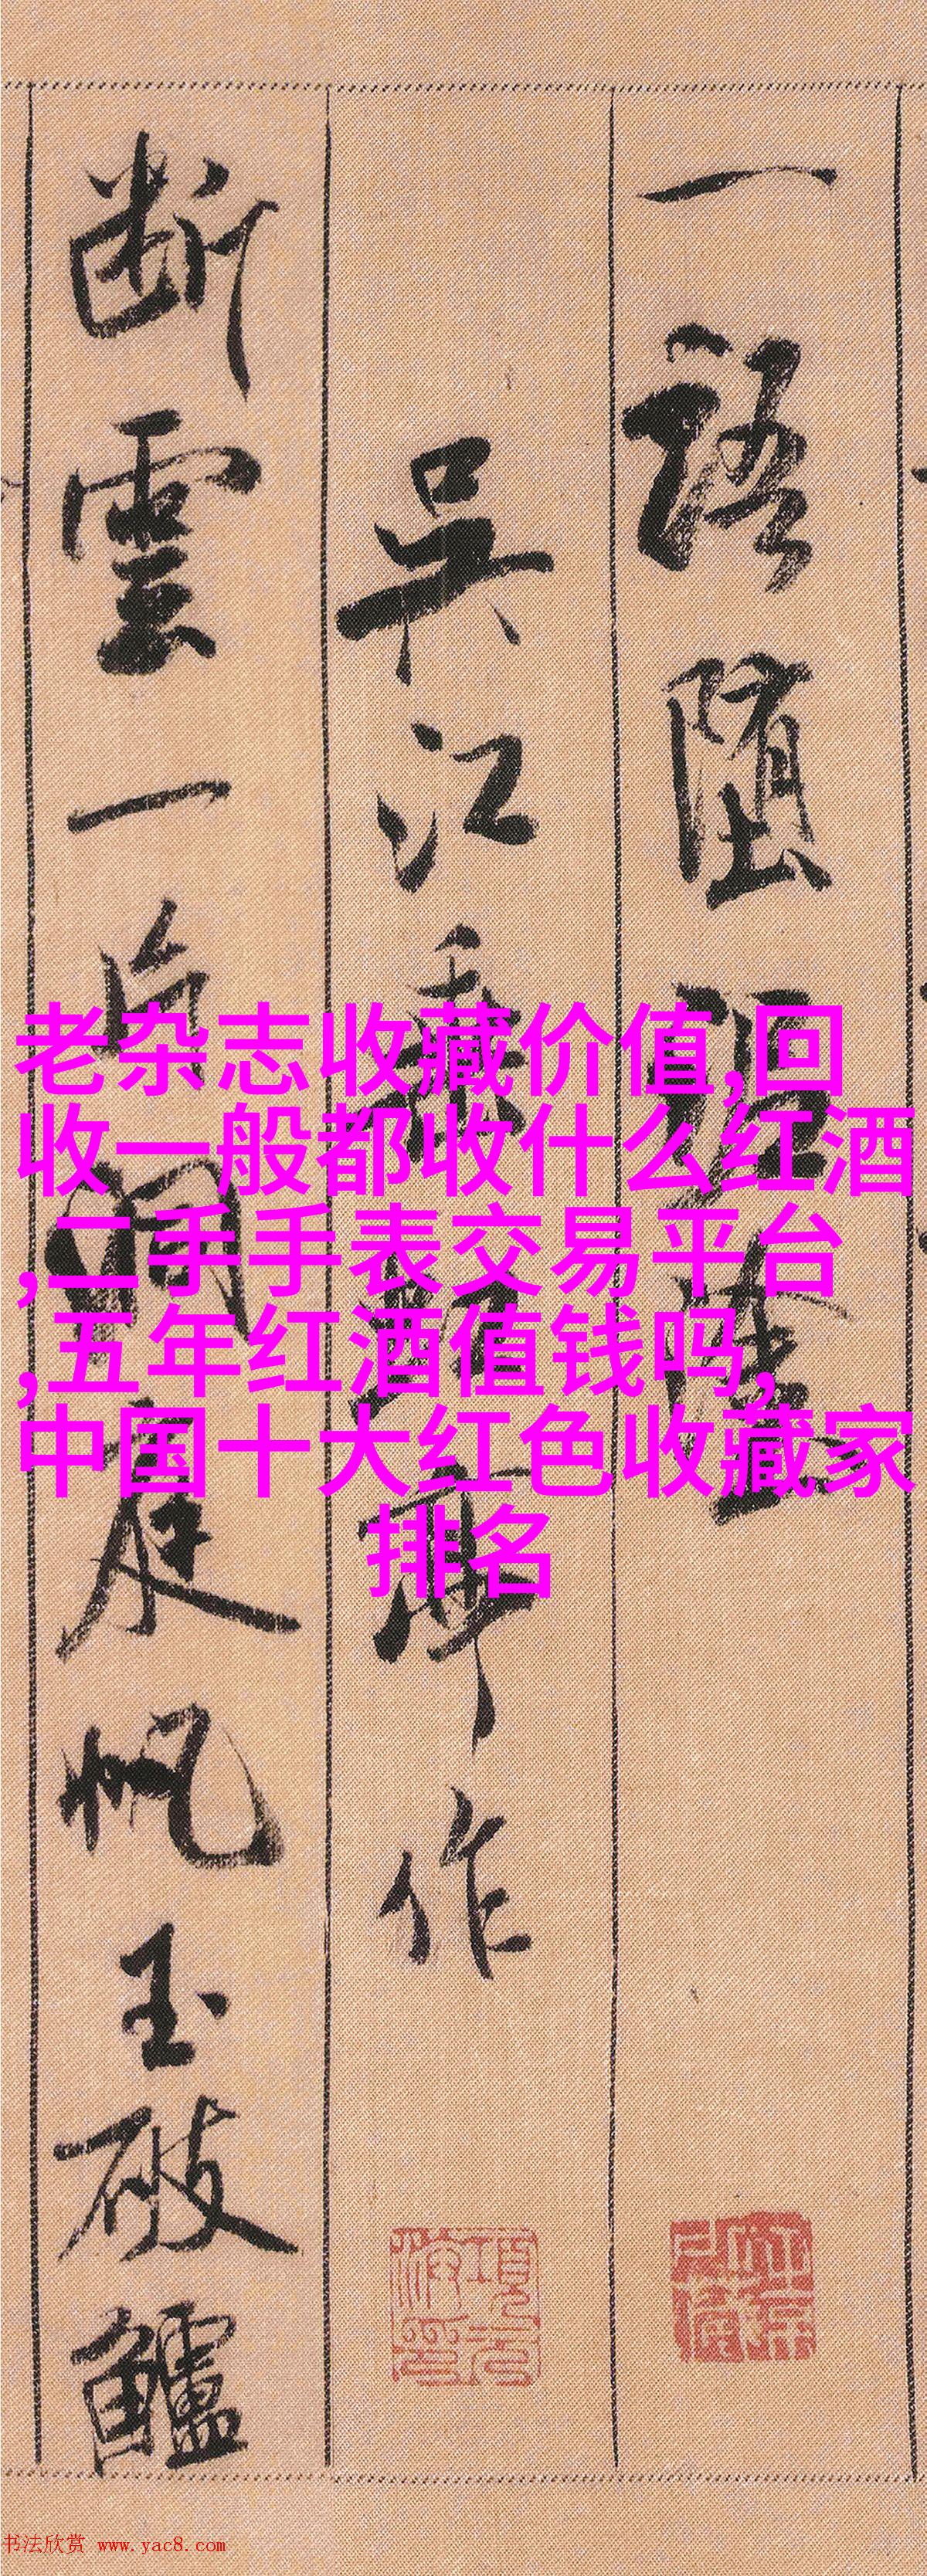 一語墮泥塗
吳江垂虹亭作
断雲一片洞庭帆玉破鱸
老杂志收藏价值,回
收一般都收什么红酒
,二手手表交易平台
,五年红酒值钱吗,
中国十大红色收藏家
排名
书法欣赏 www.yac8.com